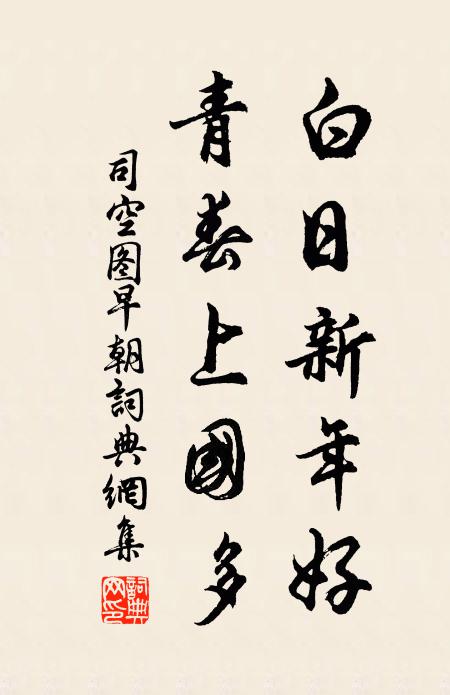 白日新年好
青春上國多
司空图早朝詞典網集
詞典網印